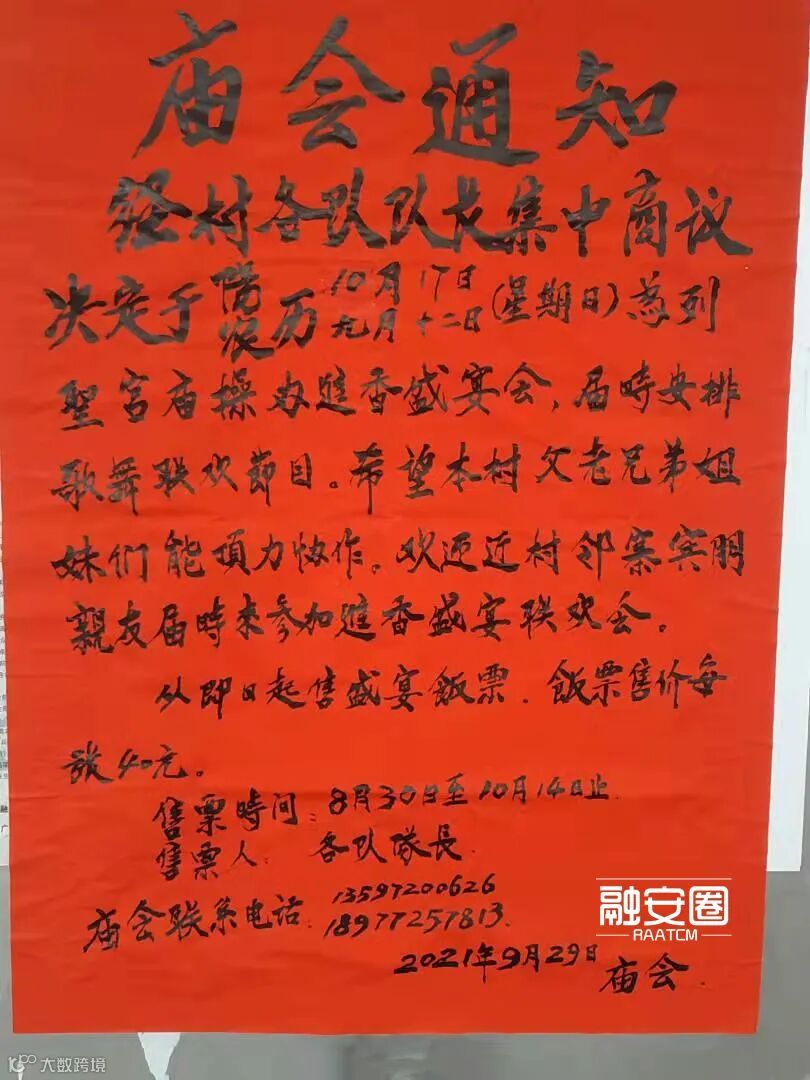 庙会通知
经村各队队长集中商议
决定于借农历10月17日九月十二日(星期日)为列
聖宫庙操办進香盛宴会,届時安排
歌舞联欢節目。希望本村父老兄弟姐
妹们能頂力协作。欢迎近村邻寨宾朋
親友届時來参加進香盛宴联欢会。
从即日起售盛宴飯票.飯票售价每
張40元。
售票時间:8月30日至10月14日止.
售票人:各队隊長.
庙会联系电话:13597200626
18977257813.
2021年9月29日
庙会.
融安圈
RAATCM
大数跨境